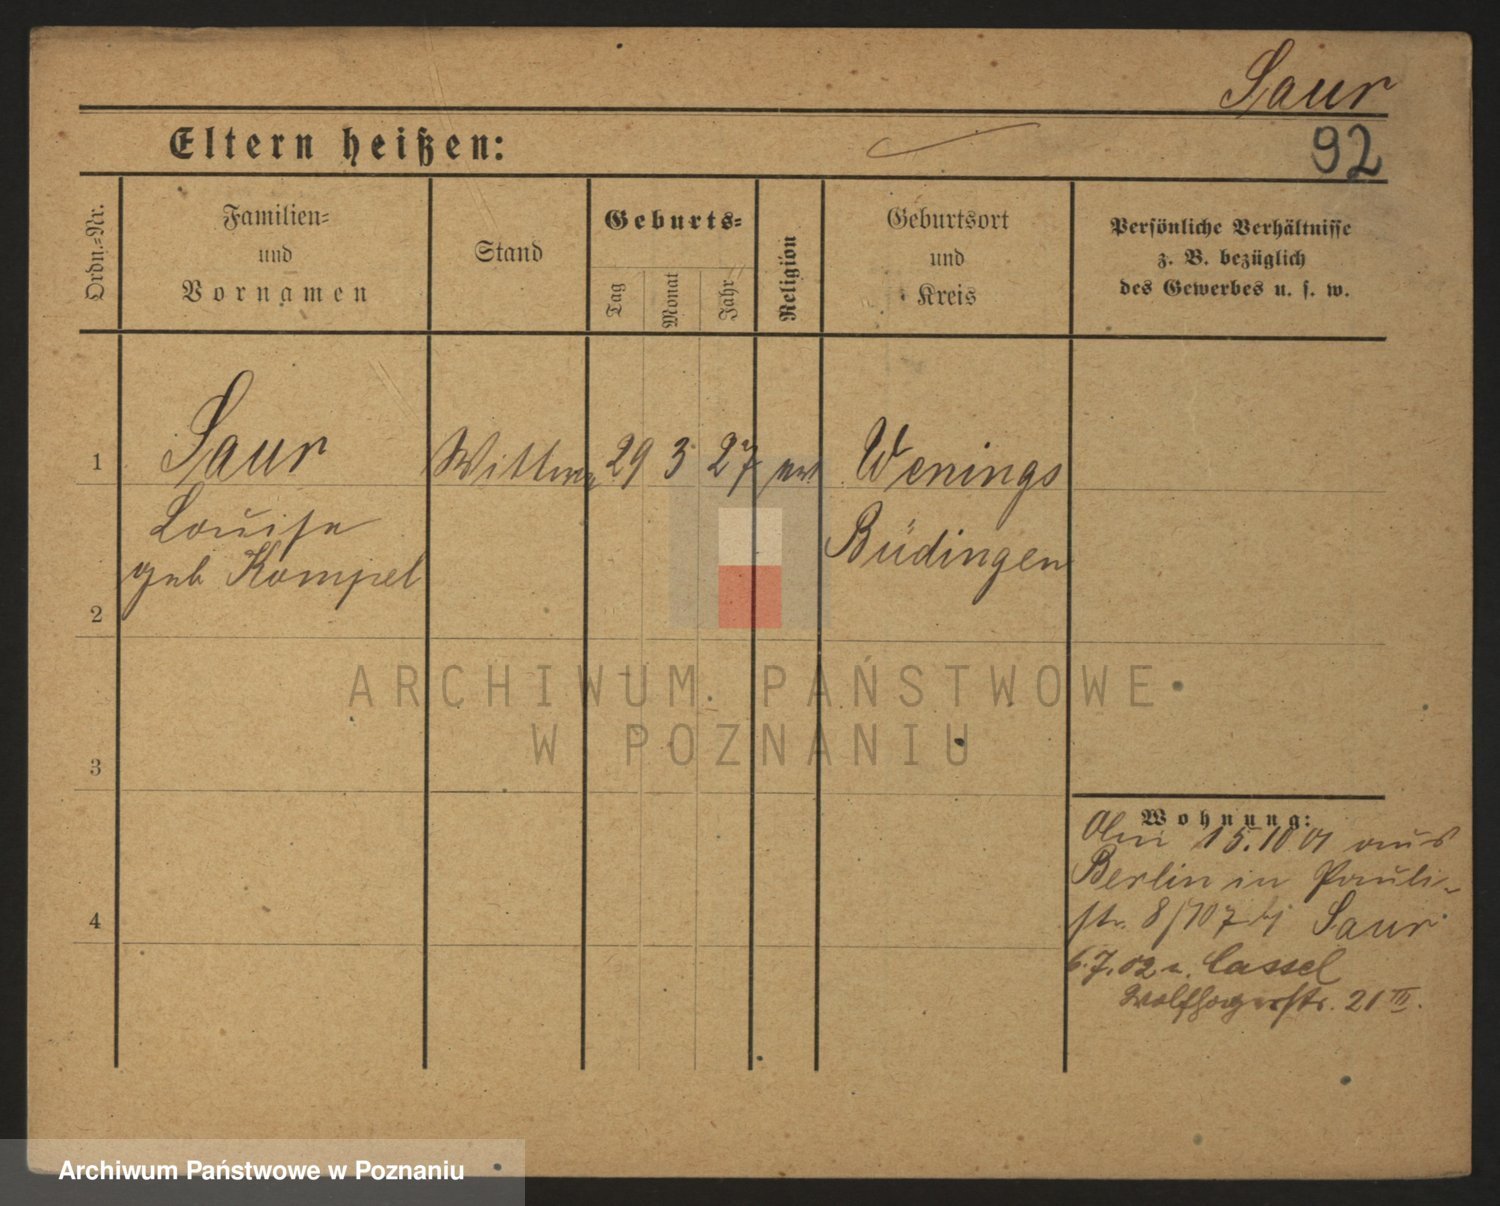 Saur
Eltern heißen:
92
Ordn.-Nr.
Familien-
und
Vornamen
Stand
Geburts-
Tag
Monat
Jahr
Religion
Geburtsort
und
Kreis
Persönliche Verhältnisse
z. B. bezüglich
des Gewerbes u. s. w.
1
Saur
Wittwe
29 3 27
Wenings
Louise
geb Kompel
Büdingen
2
ARCHIWUM PAŃSTWOWE
W POZNANIU
3
Wohnung:
15.10.01 aus
Berlin in Pauli-
str. 8/10 7 bj Saur
4
6.7.02 n. Cassel
Wolfhagerstr. 21 III.
Archiwum Państwowe w Poznaniu